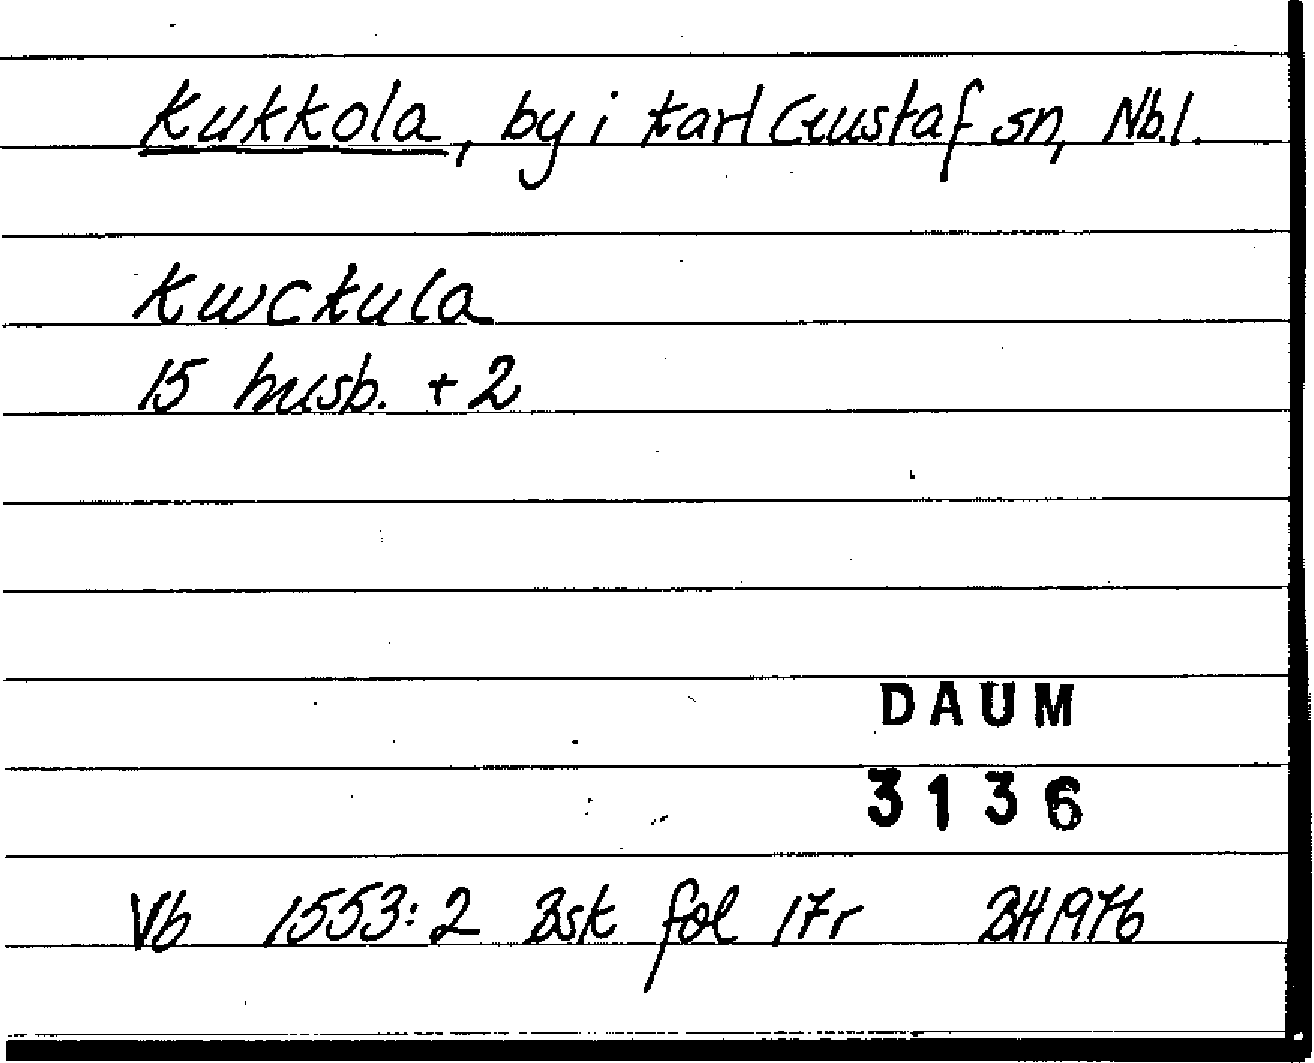 Kukkola, by i Karl Gustaf sn, Nb.l.
Kwckula
15 husb. + 2
DAUM
3136
Vb 1553:2 Bsk fol 17r BH 1976